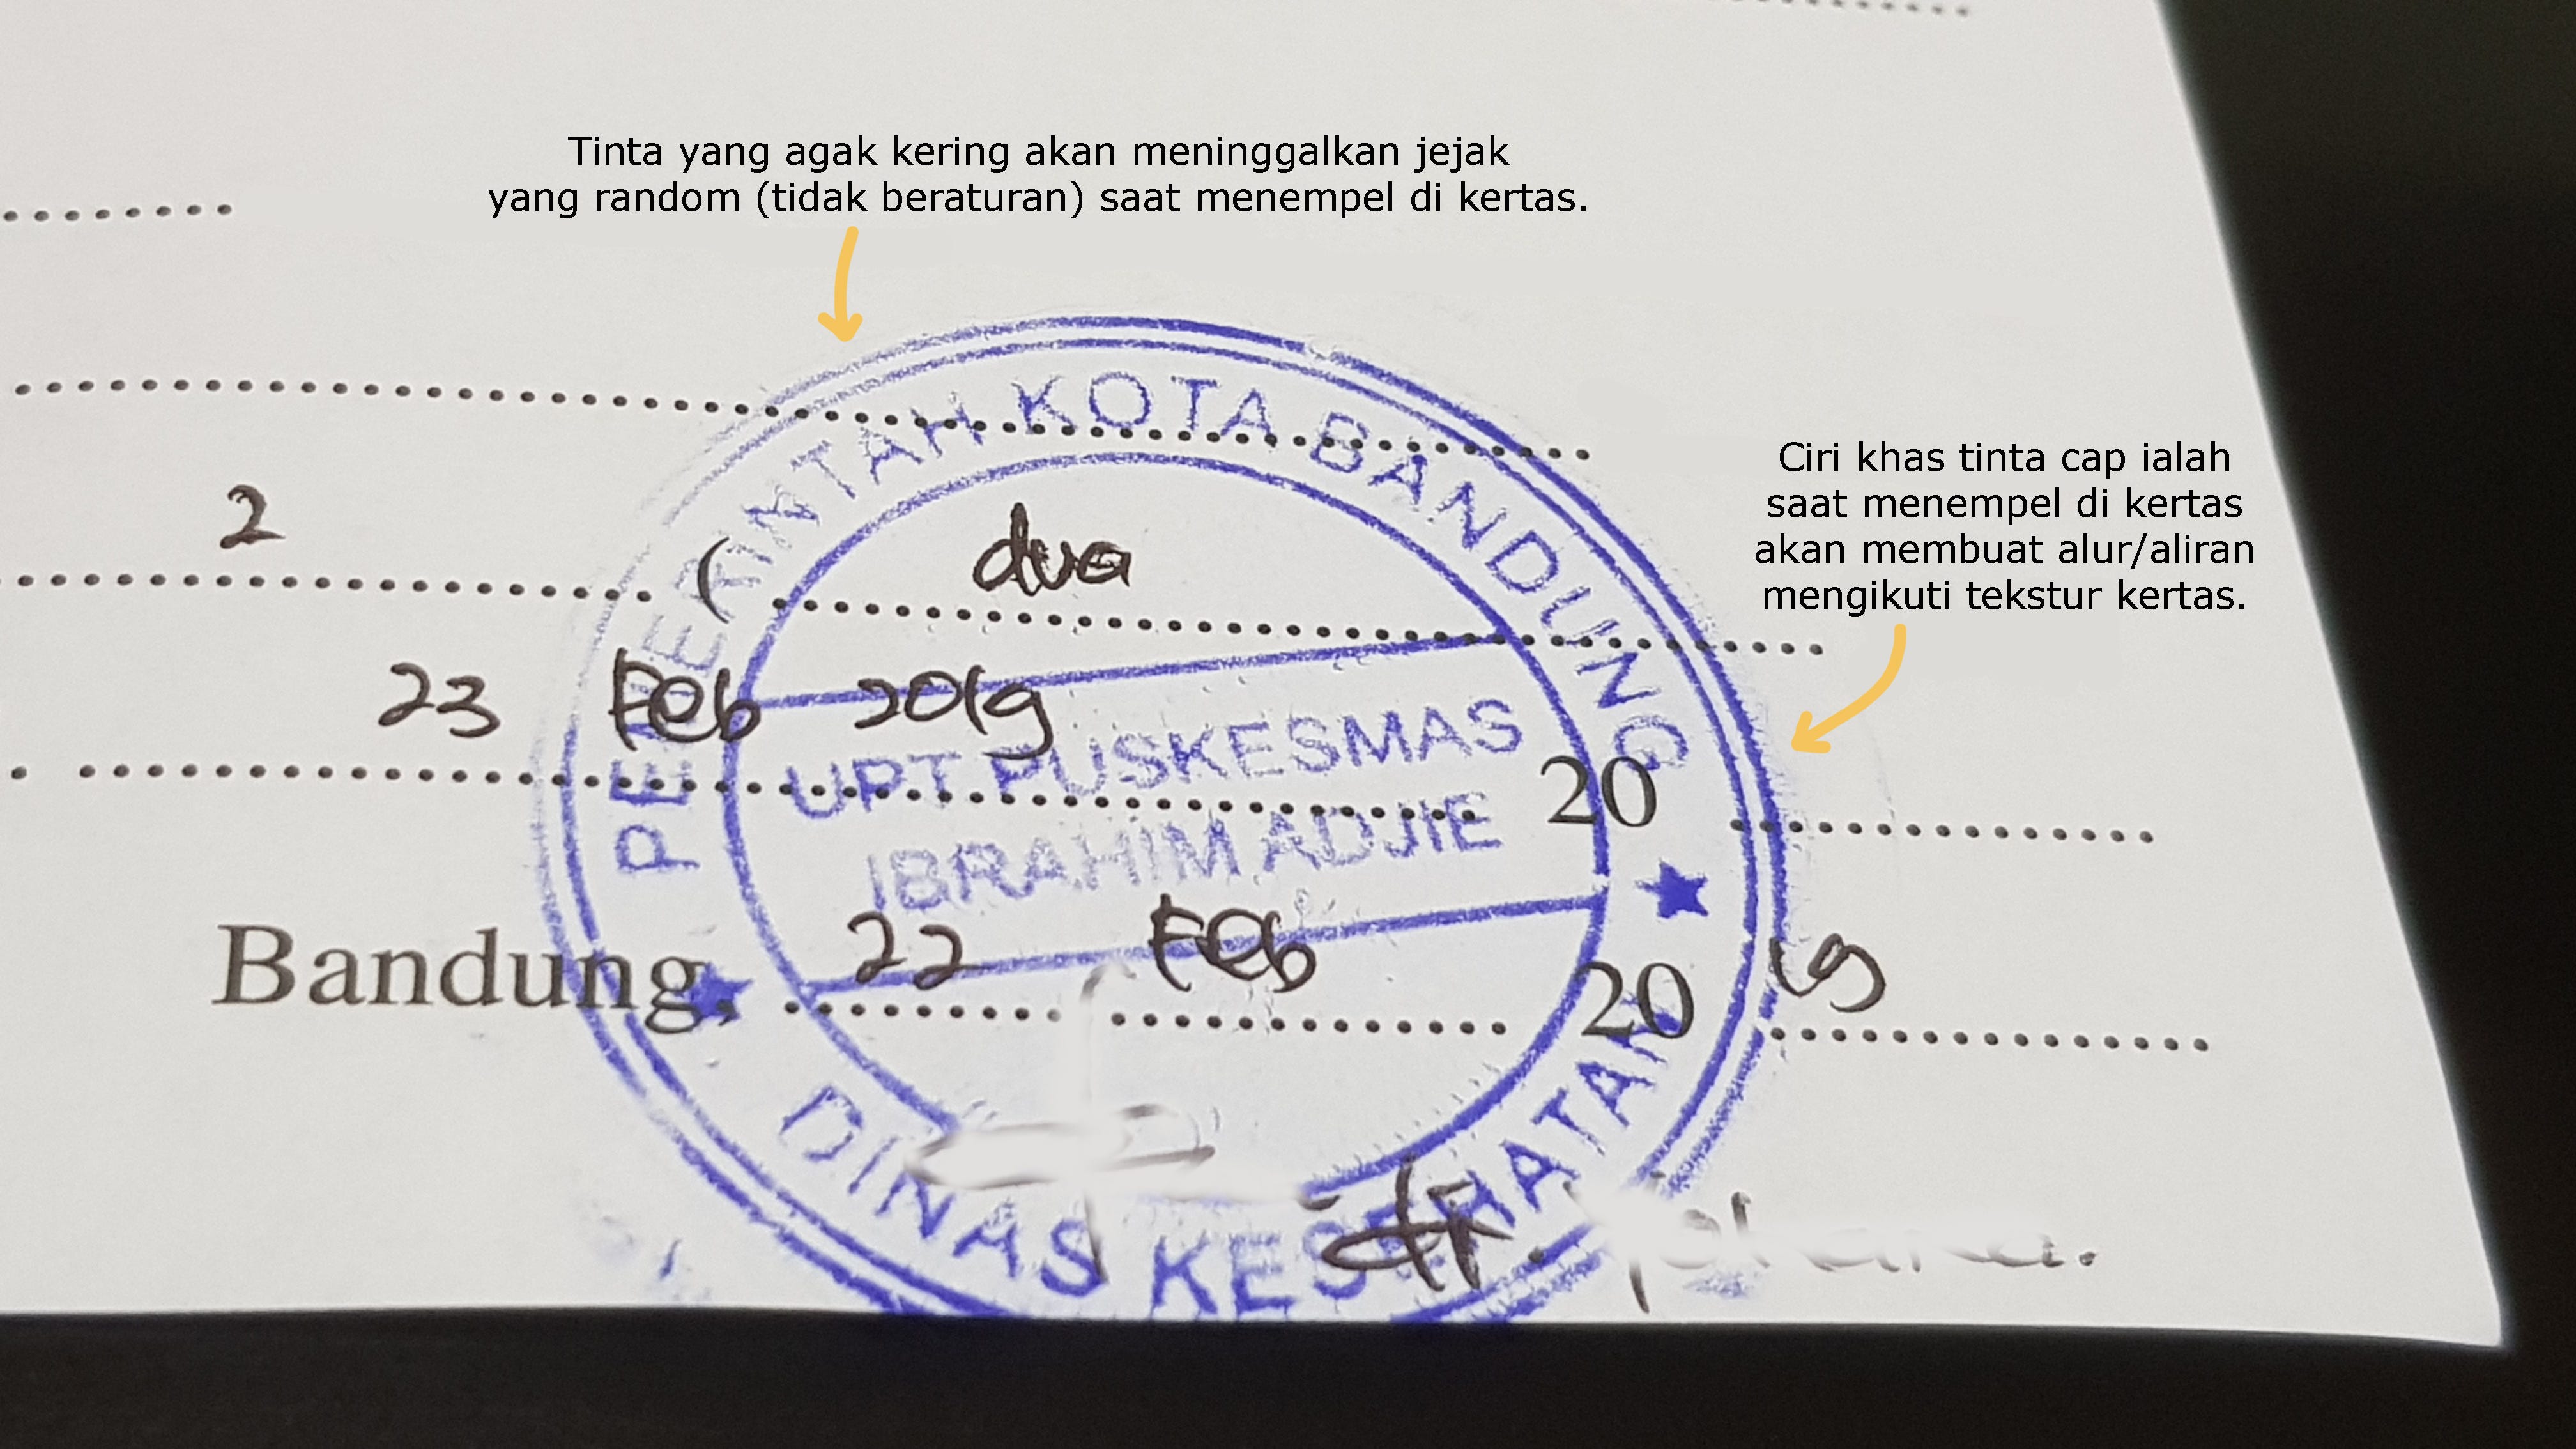 Tinta yang agak kering akan meninggalkan jejak
yang random (tidak beraturan) saat menempel di kertas.
Ciri khas tinta cap ialah
saat menempel di kertas
akan membuat alur/aliran
mengikuti tekstur kertas.
PEMERINTAH KOTA BANDUNG
2 ( dua
23 Feb 2019
UPT PUSKESMAS
20
IBRAHIM ADJIE
Bandung, 22 Feb 2019
DINAS KESEHATAN
dr.